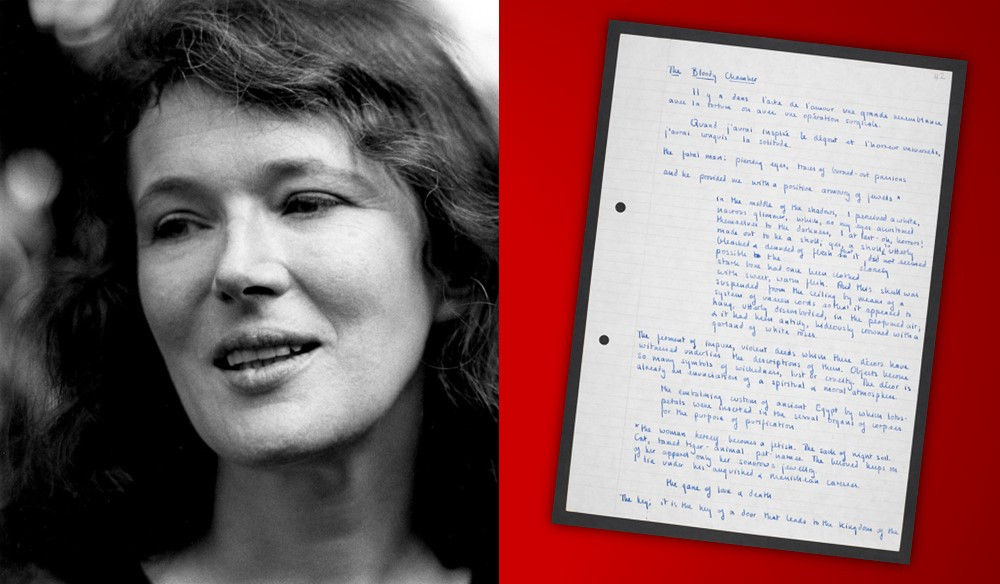 The Bloody Chamber
42
Il y a dans l'acte de l'amour une grande ressemblance
avec la torture ou avec une opération surgicale.
Quand j'aurai inspiré le dégout et l'horreur universels,
j'aurai conquis la solitude.
the fatal man: piercing eyes, traces of burned-out passions
and he provided me with a positive armoury of jewels *
in the middle of the shadows, I perceived a white,
nacrous glimmer, which, as my eyes accustomed
themselves to the darkness, I at last - oh, horrors!
made out to be a skull; yes, a skull, utterly
bleached & denuded of flesh that it did not seemed
possible the
closely
stark bone had once been clothed
with sweet, warm flesh. And this skull was
suspended from the ceiling by means of a
system of unseen cords so that it appeared to
hang, utterly disembodied, in the perfumed air;
& it had been antickly, hideously crowned with a
garland of white roses.
The ferment of impure, violent deeds which these décors have
witnessed underlies the descriptions of them. Objects become
so many symbols of wickedness, lust or cruelty. The décor is
already an invocation of a spiritual & moral atmosphere.
the embalming custom of ancient Egypt by which lotus-
petals were inserted in the sexual organs of corpses
for the purpose of purification
*the woman herself becomes a fetish. The snake of night sod.
Cat, tamed tiger - animal pet-names. The beloved keeps on
of her apparel only her sonorous jewellery.
& lies under his anguished & Manichean caresses.
the game of love & death
The key; it is the key of a door that leads to the kingdom of the